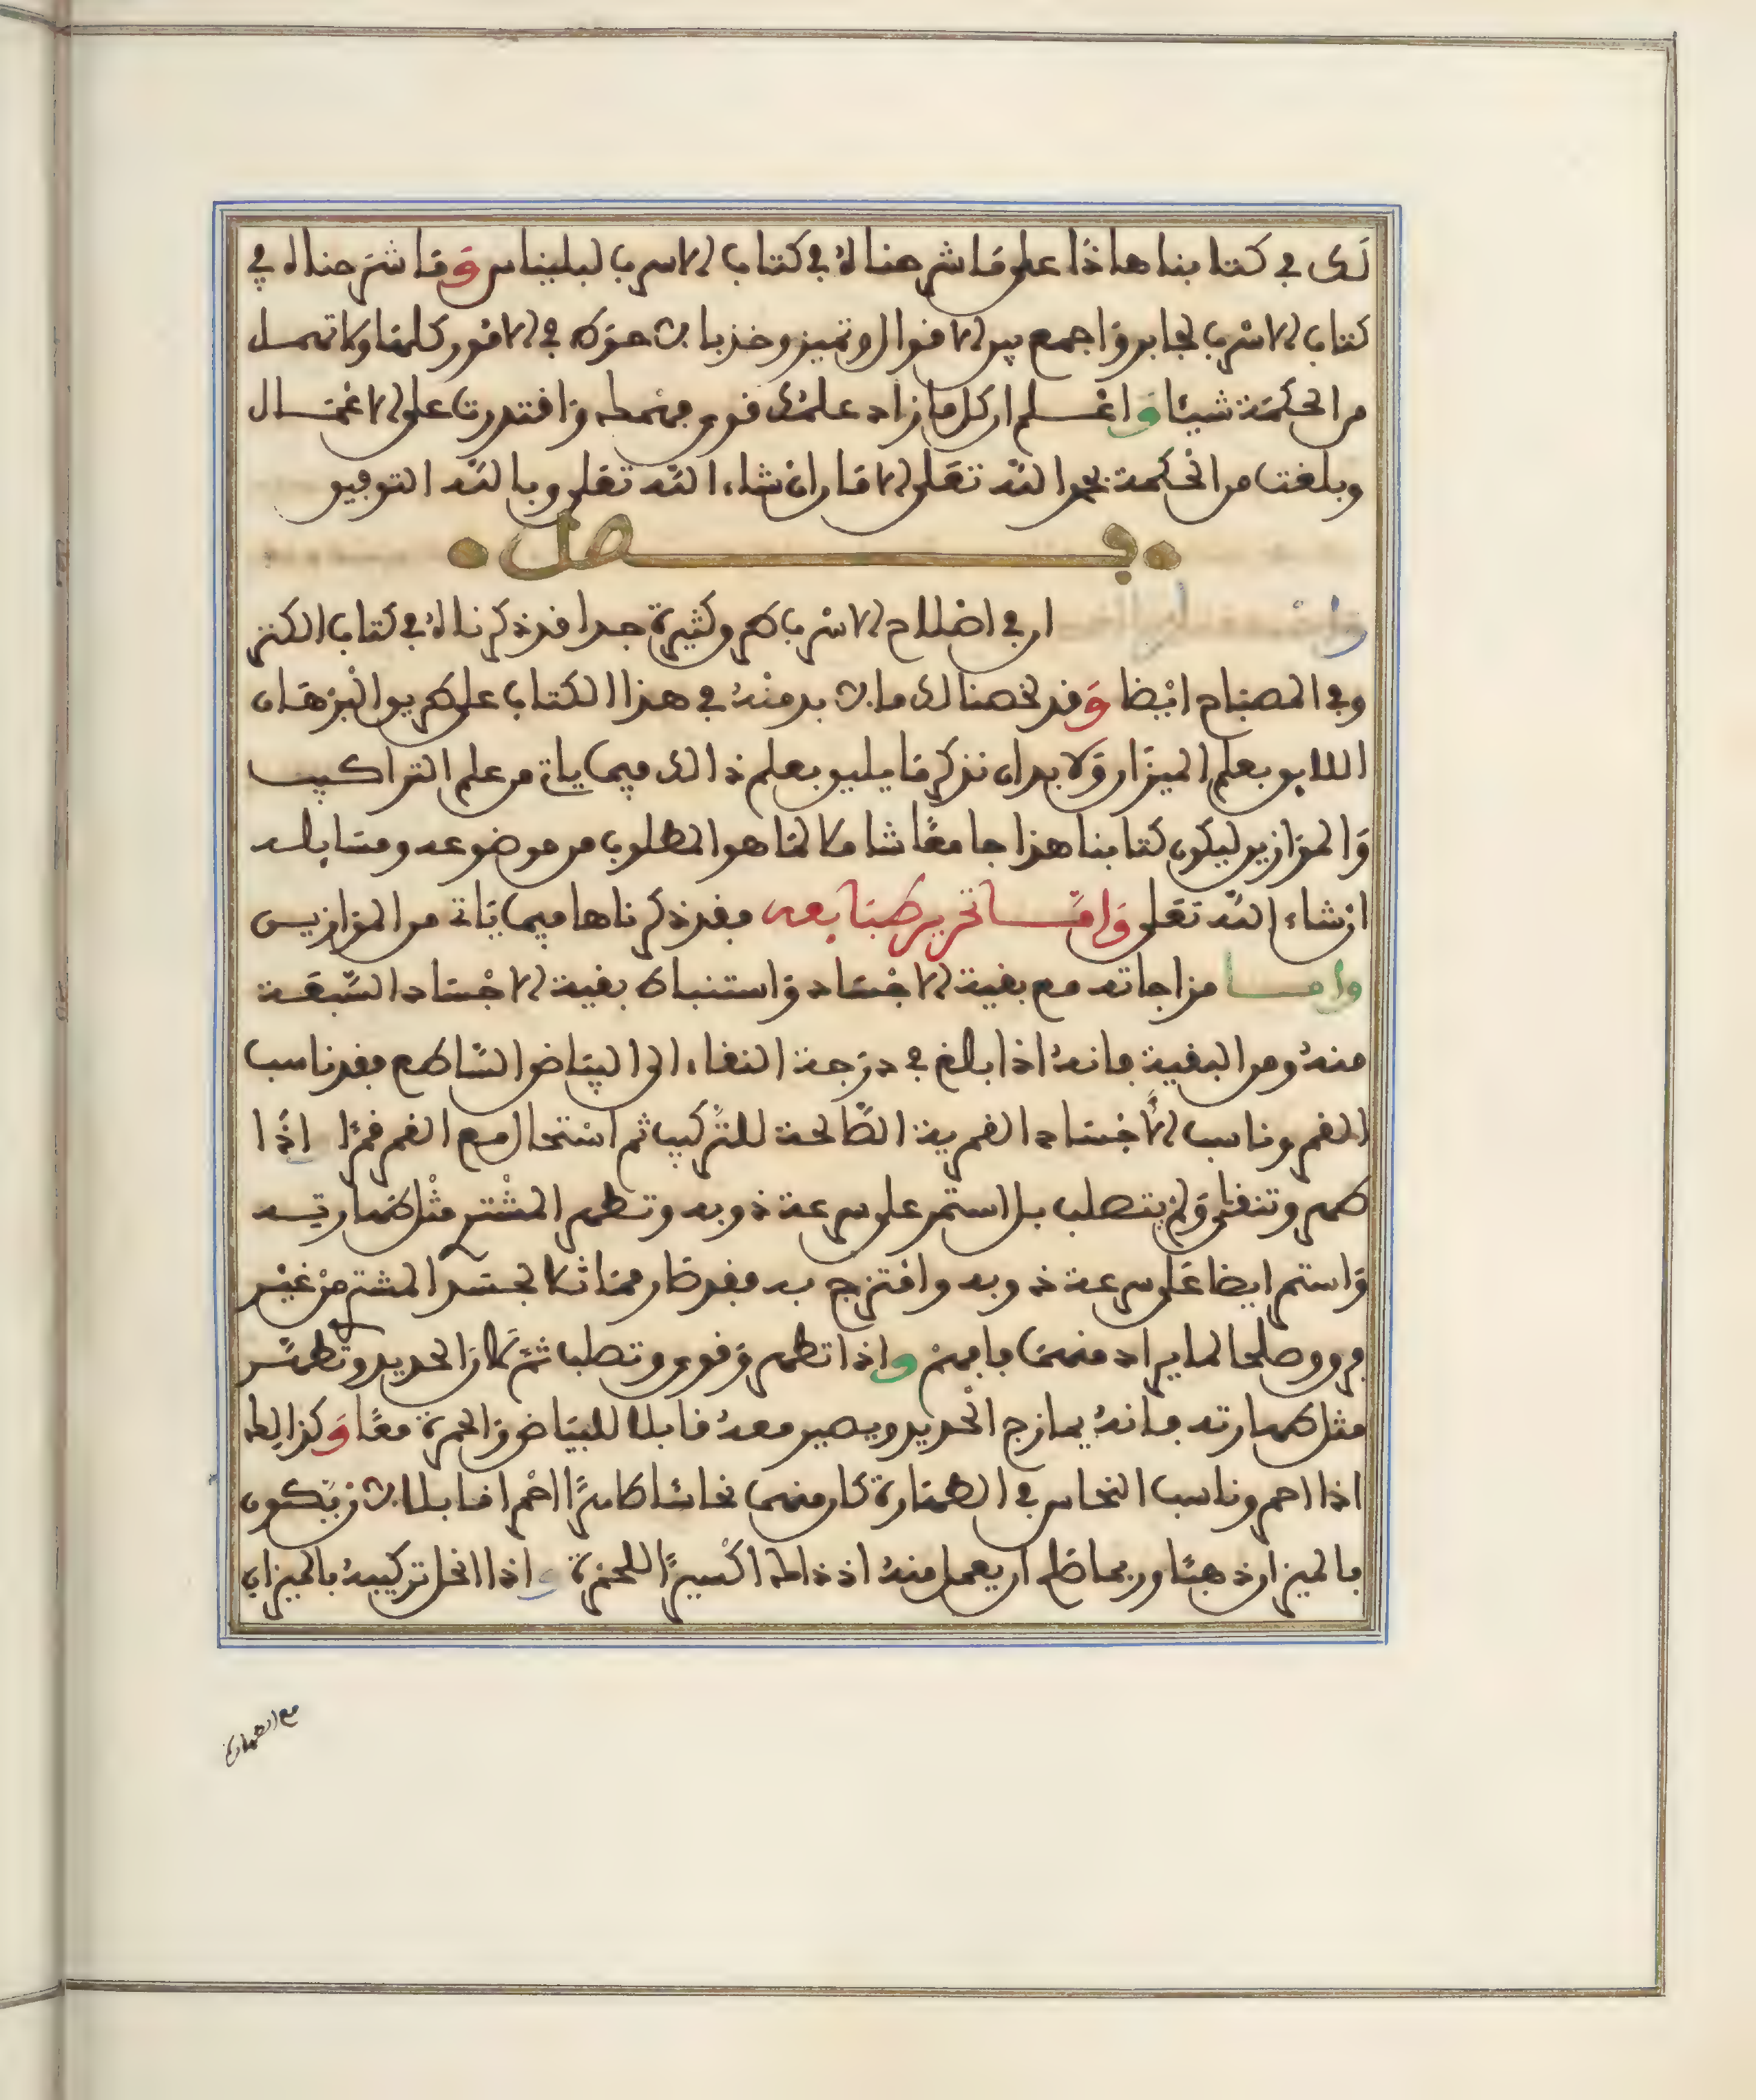 لك في كتابنا هاذا على ما شرحناه في كتاب الاسرب لبليناس وما شرحناه في
كتاب الاسرب لجابر واجمع بين الاقوال وتميز وخذ بالاحوط في الامور كلها ولا تهمل
من الحكمة شيئا واعلم ان كل ما زاد علمك قوى فهمك واقتدرت على الاعمال
وبلغت من الحكمة بحول الله تعلى الامال ان شاء الله تعلى وبالله التوفيق
فصل
ان في اصلاح الاسرب طرق كثيرة جدا قد ذكرناه في كتاب الكنز
وفي المصباح ايضا وقد لخصنا لك ما لا بد منه في هذا الكتاب على طريق البرهان
اللايق بعلم الميزان ولا بد ان نذكر ما يليق بعلم ذالك فيما ياتي من علم التراكيب
والموازين ليكون كتابنا هذا جامعا شاملا لما هو المطلوب من موضوعه ومسايله
ان شاء الله تعلى واما تحرير طبايعه فقد ذكرناها فيما ياتي من الموازين
واما مزاجاته مع بقية الاجساد واستنباط بقية الاجساد السبعة
منه ومن البقية فانه اذا بلغ في درجة النقاء الى البياض الساطع فقد ناسب
القمر وناسب الاجساد القمرية الصالحة للتركيب ثم استحال مع القمر قمرا اذا
طهر وتنقى ولم يتصلب بل استمر على سرعة ذوبه وتطهر المشتري مثل طهارته
واستمر ايضا على سرعة ذوبه وامتزج به فقد صار مماثلا لجسد المشتري من غير
فرق وصلحا لما يراد منهما فافهم واذا تطهر وقوى وتصلب ثم لازن الحديد وتطهر
مثل طهارته فانه يمازج الحديد ويصير معه قابلا للبياض والحمرة معا وكذالك
اذا احمر وناسب النحاس في الطهارة كان منهما نحاسا طاهرا احمر قابلا لان يكون
بالميزان ذهبا وربما صلح ان يعمل منه اذ ذاك اكسيرا للحمرة و اذا انحل تركيبه بالميزان
مع الطهارة